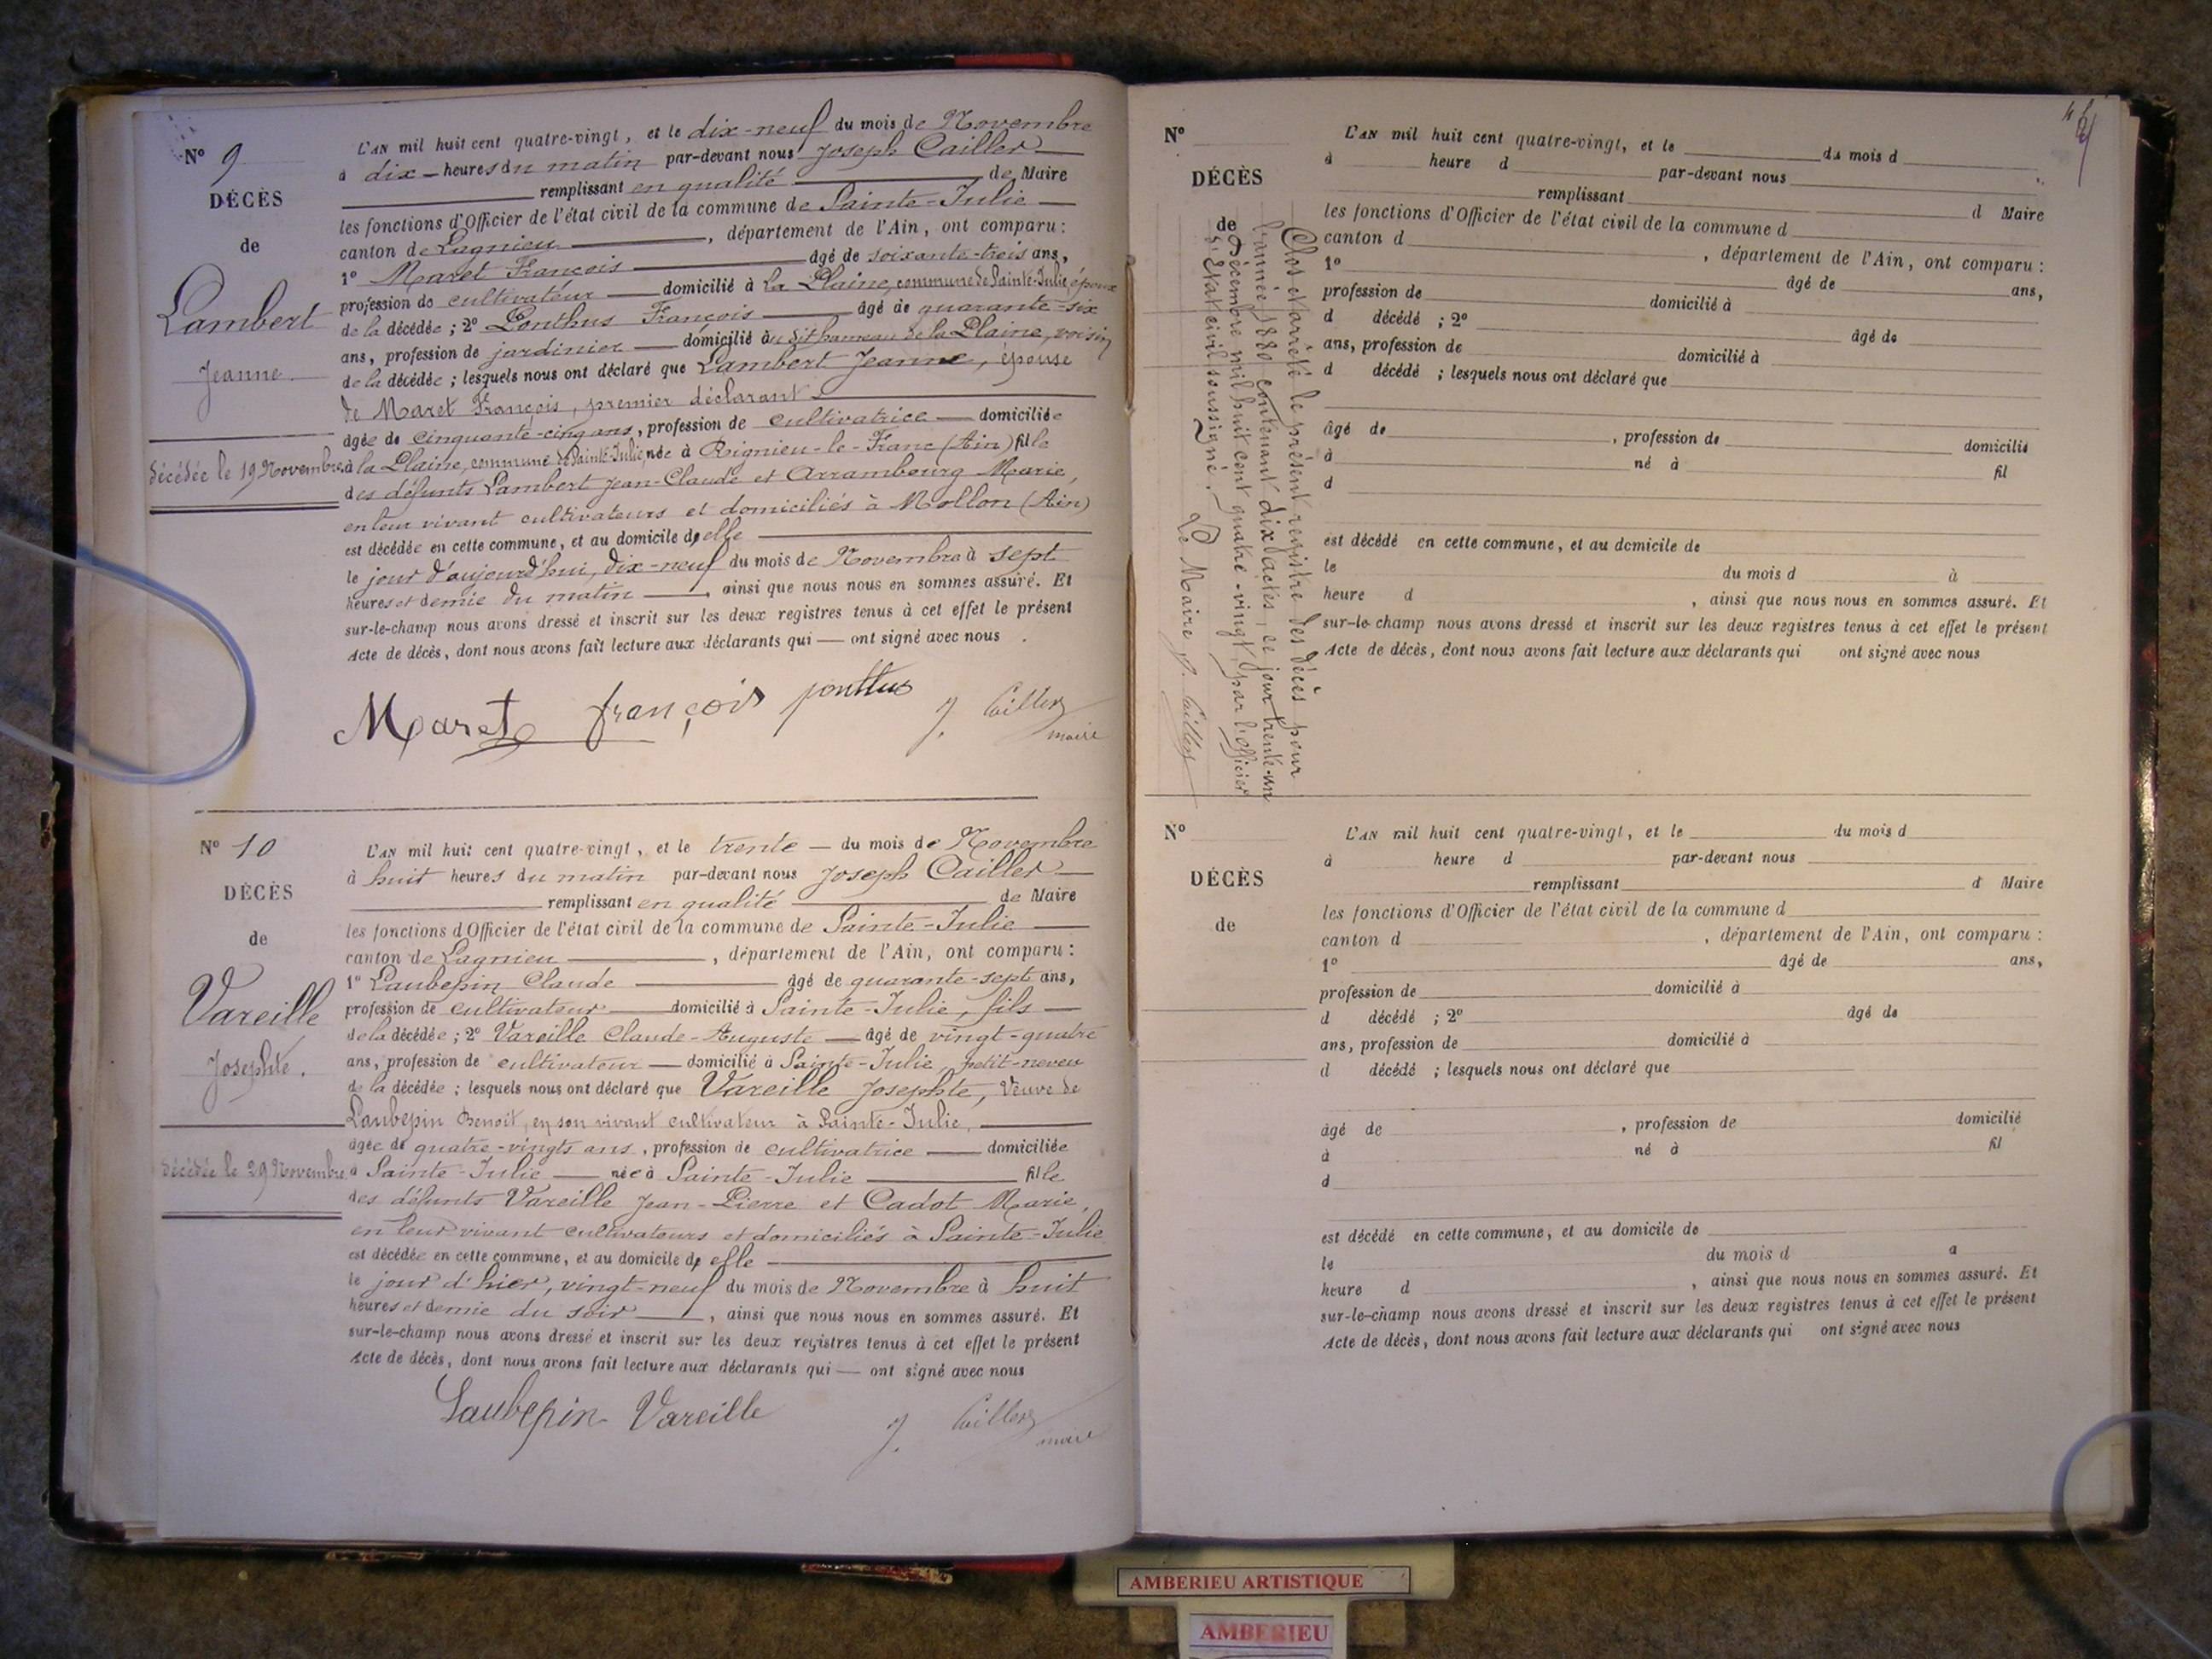 N° 9
DÉCÈS
de
Lambert
Jeanne.
décédée le 19 Novembre
L'AN mil huit cent quatre-vingt, et le dix-neuf du mois de Novembre
à dix — heures du matin par-devant nous Joseph Cailler
remplissant en qualité de Maire
les fonctions d'Officier de l'état civil de la commune de Sainte-Julie
canton de Lagnieu, département de l'Ain, ont comparu :
1° Maret François âgé de soixante-trois ans,
profession de cultivateur domicilié à La Plaine, commune de Sainte-Julie, époux
de la décédée ; 2° Ponthus François âgé de quarante-six
ans, profession de jardinier domicilié au dit hameau de la Plaine, voisin
de la décédée ; lesquels nous ont déclaré que Lambert Jeanne, épouse
de Maret François, premier déclarant
âgée de cinquante-cinq ans, profession de cultivatrice domiciliée
à la Plaine, commune de Sainte-Julie, née à Rignieu-le-Franc (Ain) fille
des défunts Lambert Jean-Claude et Arrambourg Marie,
en leur vivant cultivateurs et domiciliés à Mollon (Ain)
est décédée en cette commune, et au domicile d'elle
le jour d'aujourd'hui, dix-neuf du mois de Novembre à sept
heures et demie du matin, ainsi que nous nous en sommes assuré. Et
sur-le-champ nous avons dressé et inscrit sur les deux registres tenus à cet effet le présent
Acte de décès, dont nous avons fait lecture aux déclarants qui — ont signé avec nous.
Maret françois ponthus J. Cailler
maire
N° 10
DÉCÈS
de
Vareille
Josephte.
décédée le 29 Novembre
L'AN mil huit cent quatre-vingt, et le trente — du mois de Novembre
à huit heures du matin par-devant nous Joseph Cailler
remplissant en qualité de Maire
les fonctions d'Officier de l'état civil de la commune de Sainte-Julie
canton de Lagnieu, département de l'Ain, ont comparu :
1° Laubepin Claude âgé de quarante-sept ans,
profession de cultivateur domicilié à Sainte-Julie, fils
de la décédée ; 2° Vareille Claude-Auguste — âgé de vingt-quatre
ans, profession de cultivateur — domicilié à Sainte-Julie petit-neveu
de la décédée ; lesquels nous ont déclaré que Vareille Josephte, Veuve de
Laubepin Benoît, en son vivant cultivateur à Sainte-Julie,
âgée de quatre-vingts ans, profession de cultivatrice domiciliée
à Sainte-Julie — née à Sainte-Julie fille
des défunts Vareille Jean-Pierre et Cadot Marie,
en leur vivant cultivateurs et domiciliés à Sainte-Julie
est décédée en cette commune, et au domicile d'elle
le jour d'hier, vingt-neuf du mois de Novembre à huit
heures et demie du soir, ainsi que nous nous en sommes assuré. Et
sur-le-champ nous avons dressé et inscrit sur les deux registres tenus à cet effet le présent
Acte de décès, dont nous avons fait lecture aux déclarants qui — ont signé avec nous
Laubepin Vareille J. Cailler
maire
N°
DÉCÈS
de
Clos et arrêté le présent registre des décès pour
l'année 1880 contenant dix actes, ce jour trente-un
Décembre mil huit cent quatre-vingt, par l'officier
d'Etat civil soussigné.
Le Maire J. Cailler
L'AN mil huit cent quatre-vingt, et le du mois d
à heure d par-devant nous
remplissant d Maire
les fonctions d'Officier de l'état civil de la commune d
canton d , département de l'Ain, ont comparu :
1° âgé de ans,
profession de domicilié à
d décédé ; 2° âgé de
ans, profession de domicilié à
d décédé ; lesquels nous ont déclaré que
âgé de , profession de domicilié
à né à fil
d
est décédé en cette commune, et au domicile de
le du mois d à
heure d , ainsi que nous nous en sommes assuré. Et
sur-le-champ nous avons dressé et inscrit sur les deux registres tenus à cet effet le présent
Acte de décès, dont nous avons fait lecture aux déclarants qui ont signé avec nous
N°
DÉCÈS
de
L'AN mil huit cent quatre-vingt, et le du mois d
à heure d par-devant nous
remplissant d Maire
les fonctions d'Officier de l'état civil de la commune d
canton d , département de l'Ain, ont comparu :
1° âgé de ans,
profession de domicilié à
d décédé ; 2° âgé de
ans, profession de domicilié à
d décédé ; lesquels nous ont déclaré que
âgé de , profession de domicilié
à né à fil
d
est décédé en cette commune, et au domicile de
le du mois d à
heure d , ainsi que nous nous en sommes assuré. Et
sur-le-champ nous avons dressé et inscrit sur les deux registres tenus à cet effet le présent
Acte de décès, dont nous avons fait lecture aux déclarants qui ont signé avec nous
AMBERIEU ARTISTIQUE
AMBERIEU